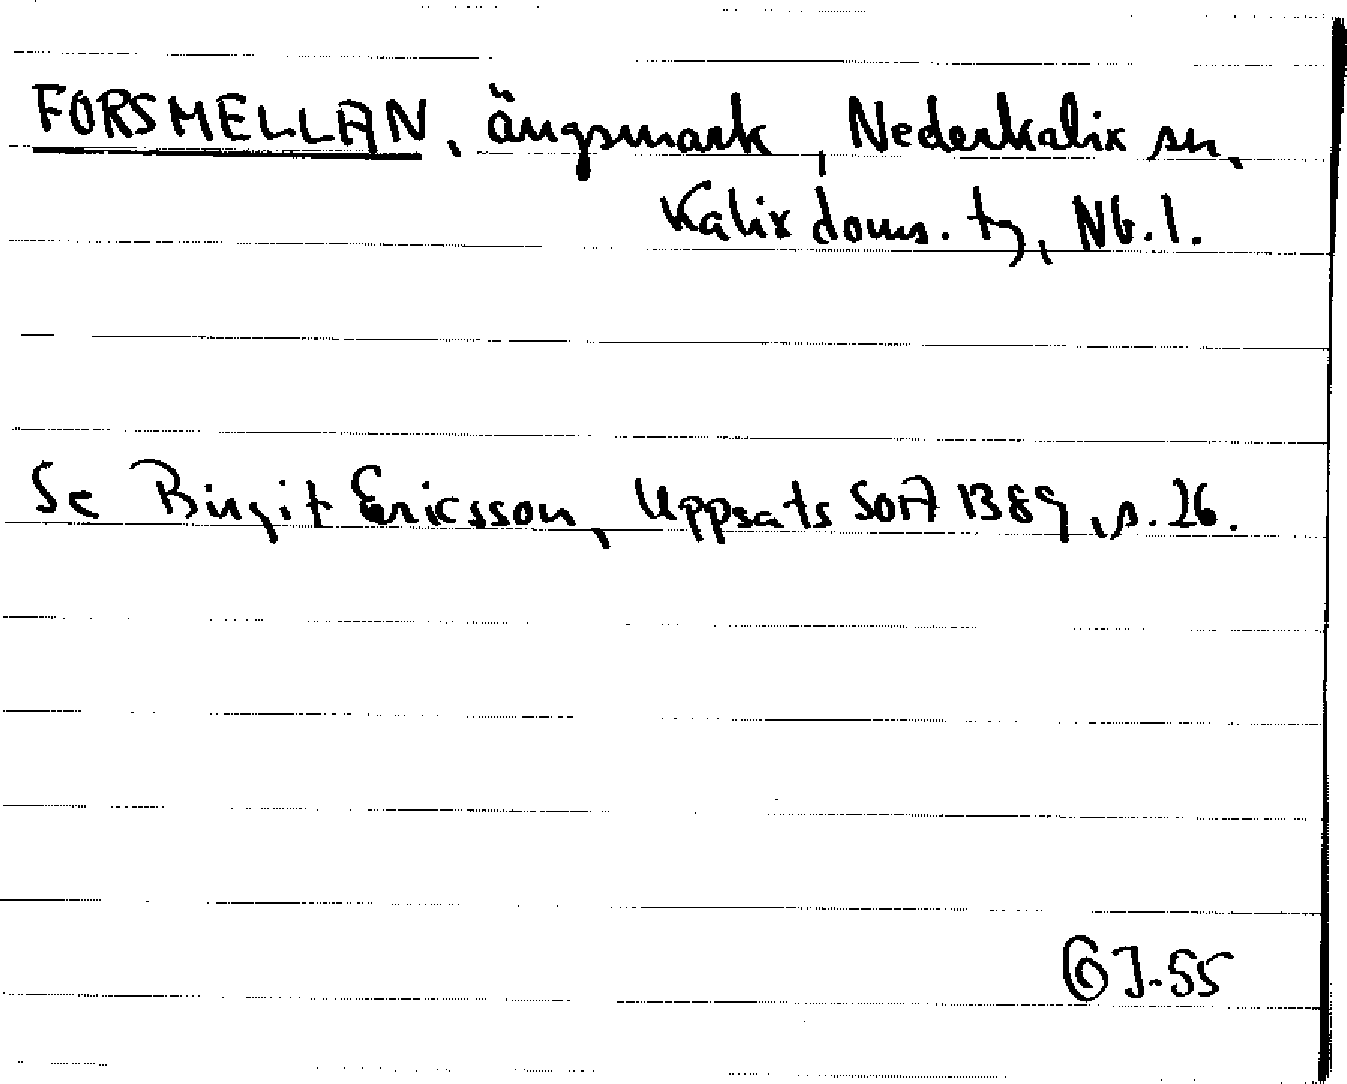 FORSMELLAN, ängsmark, Nederkalix sn,
Kalix doms. tg, Nb. l.
Se Birgit Ericsson, Uppsats SOFA 1389, s. 26.